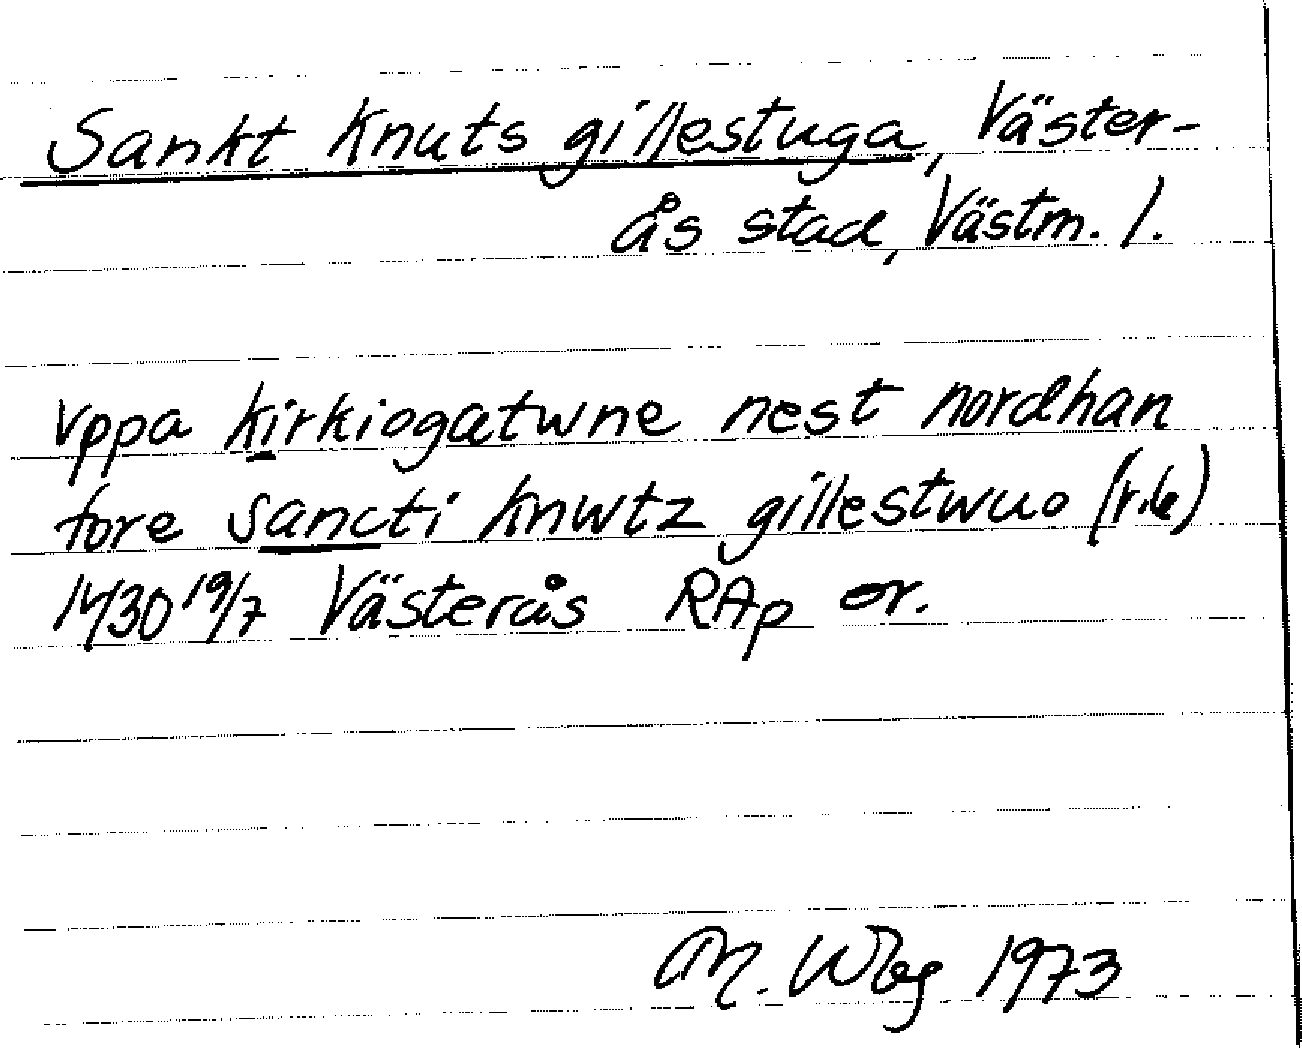 Sankt Knuts gillestuga, Väster-
ås stad, Västm. l.
vppa kirkiogatwne nest nordhan
fore sancti knwtz gillestwuo
1430 19/7 Västerås RAp or.
M. Wbg 1973